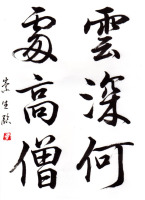 雲深何
處高僧